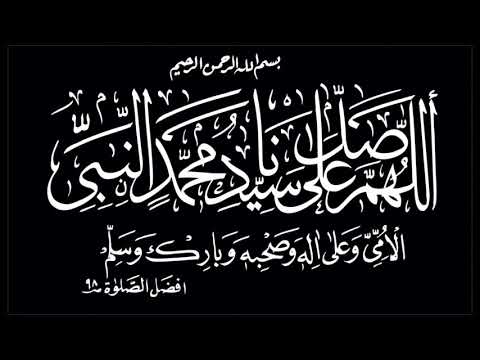 بسم الله الرحمن الرحيم
أللهم صل على سيدنا محمد النبي
الأمي وعلى اله وصحبه وبارك وسلم
افضل الصلوة ٩٨